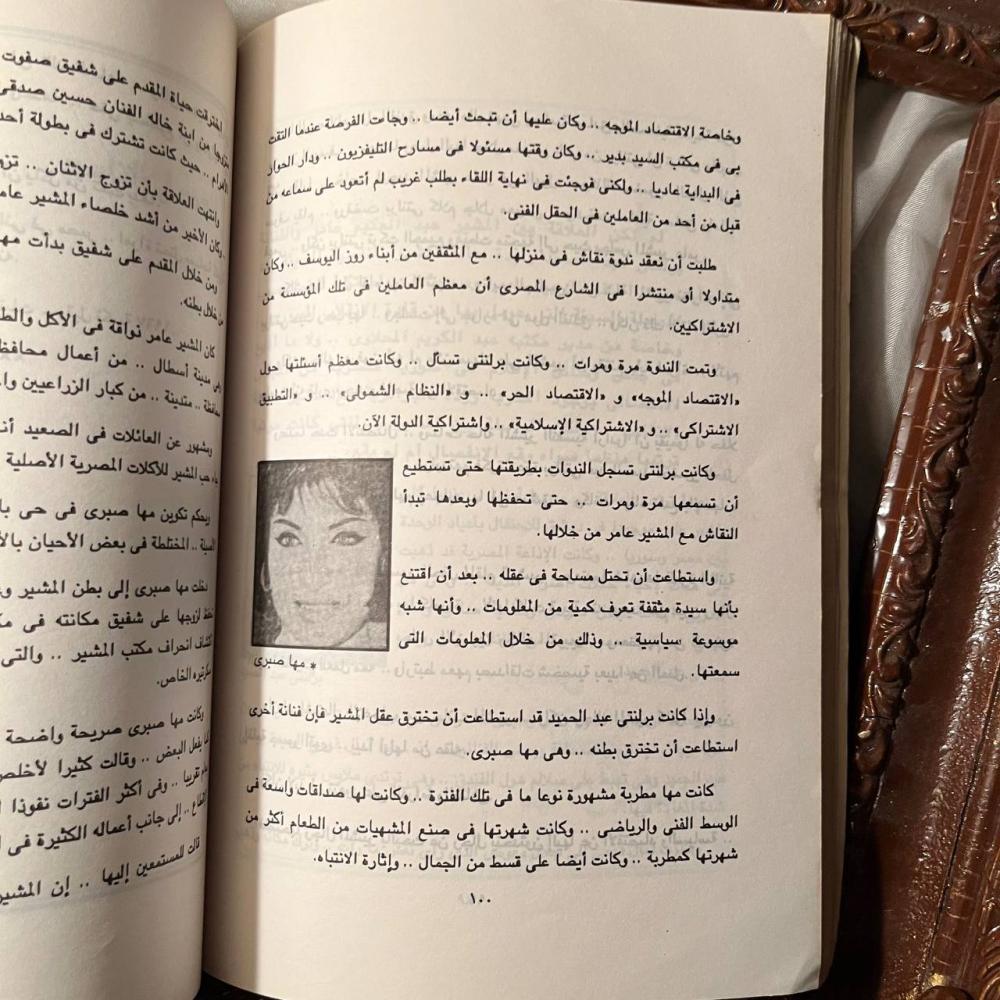 وخاصة الاقتصاد الموجه .. وكان عليها أن تبحث أيضا .. وجاءت الفرصة عندما التقت
بى فى مكتب السيد بدير .. وكان وقتها مسئولا فى مسارح التليفزيون .. ودار الحوار
فى البداية عاديا .. ولكنى فوجئت فى نهاية اللقاء بطلب غريب لم أتعود على سماعه من
قبل من أحد من العاملين فى الحقل الفنى.
طلبت أن نعقد ندوة نقاش فى منزلها .. مع المثقفين من أبناء روز اليوسف .. وكان
متداولا أو منتشرا فى الشارع المصرى أن معظم العاملين فى تلك المؤسسة من
الاشتراكيين.
وتمت الندوة مرة ومرات .. وكانت برلنتى تسأل .. وكانت معظم أسئلتها حول
«الاقتصاد الموجه» و «الاقتصاد الحر» .. و «النظام الشمولى» .. و «التطبيق
الاشتراكى» .. و «الاشتراكية الإسلامية» .. واشتراكية الدولة الآن.
وكانت برلنتى تسجل الندوات بطريقتها حتى تستطيع
أن تسمعها مرة ومرات .. حتى تحفظها وبعدها تبدأ
النقاش مع المشير عامر من خلالها.
واستطاعت أن تحتل مساحة فى عقله .. بعد أن اقتنع
بأنها سيدة مثقفة تعرف كمية من المعلومات .. وأنها شبه
موسوعة سياسية .. وذلك من خلال المعلومات التى
سمعتها.
* مها صبرى
وإذا كانت برلنتى عبد الحميد قد استطاعت أن تخترق عقل المشير فإن فنانة أخرى
استطاعت أن تخترق بطنه .. وهى مها صبرى.
كانت مها مطربة مشهورة نوعا ما فى تلك الفترة .. وكانت لها صداقات واسعة فى
الوسط الفنى والرياضى .. وكانت شهرتها فى صنع المشهيات من الطعام أكثر من
شهرتها كمطربة .. وكانت أيضا على قسط من الجمال .. وإثارة الانتباه.
١٠٠
اخترقت حياة المقدم على شفيق صفوت
من ابنة خاله الفنان حسين صدقى
الأهرام .. حيث كانت تشترك فى بطولة أحد
وانتهت العلاقة بأن تزوج الاثنان ..
وكان الأخير من أشد خلصاء المشير
ومن خلال المقدم على شفيق بدأت
من خلال بطنه.
كان المشير عامر نواقة فى الأكل
مدينة أسطال .. من أعمال
متدينة .. من كبار الزراعيين
ومشهور عن العائلات فى الصعيد
حب المشير للأكلات المصرية الأصلية
وبحكم تكوين مها صبرى فى حى
المختلطة فى بعض الأحيان
دخلت مها صبرى إلى بطن المشير
على شفيق مكانته فى
انحراف مكتب المشير .. والتى
الخاص.
وكانت مها صبرى صريحة واضحة
يفعل البعض .. وقالت كثيرا
تقريبا .. وفى أكثر الفترات نفوذا
إلى جانب أعماله الكثيرة فى
قالت للمستمعين إليها .. إن